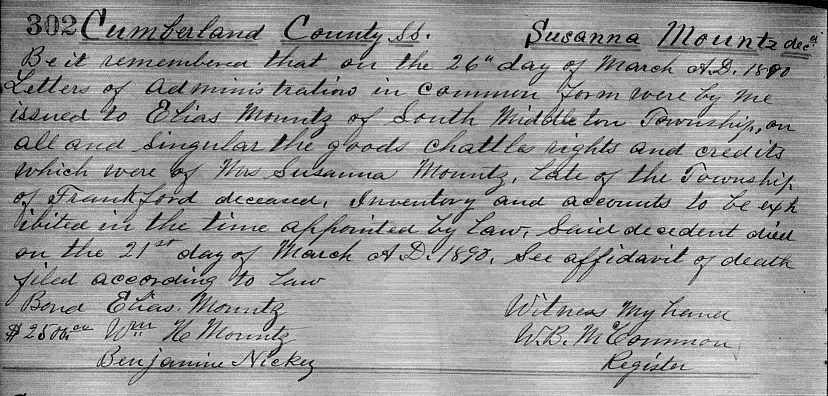 302 Cumberland County ss. Susanna Mountz dec'd
Be it remembered that on the 26" day of March A.D. 1890
Letters of Administration in common form were by me
issued to Elias Mountz of South Middleton Township, on
all and singular the goods chattles rights and credits
which were of Mrs Susanna Mountz, late of the Township
of Frankford deceased, Inventory and accounts to be exh
ibited in the time appointed by law, Said decedent died
on the 21st day of March A.D. 1890, See affidavit of death
filed according to law
Bond Elias Mountz Witness my hand
Wm H Mountz W.B. McCommon
Benjamine Nickey Register